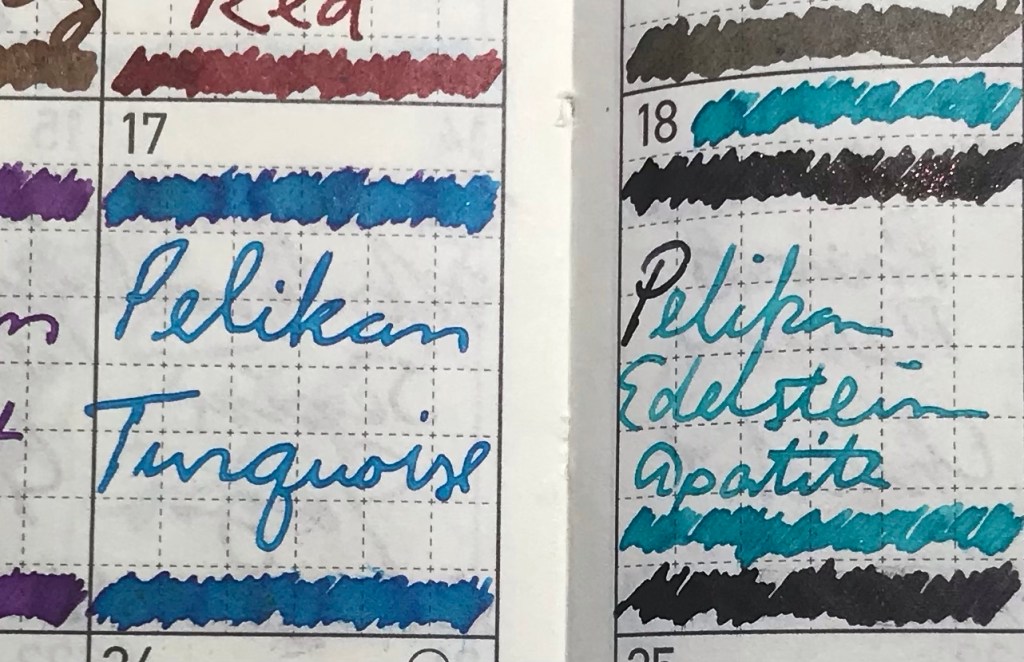 Red
17
Pelikan
Turquoise
18
Pelikan
Edelstein
Apatite
25